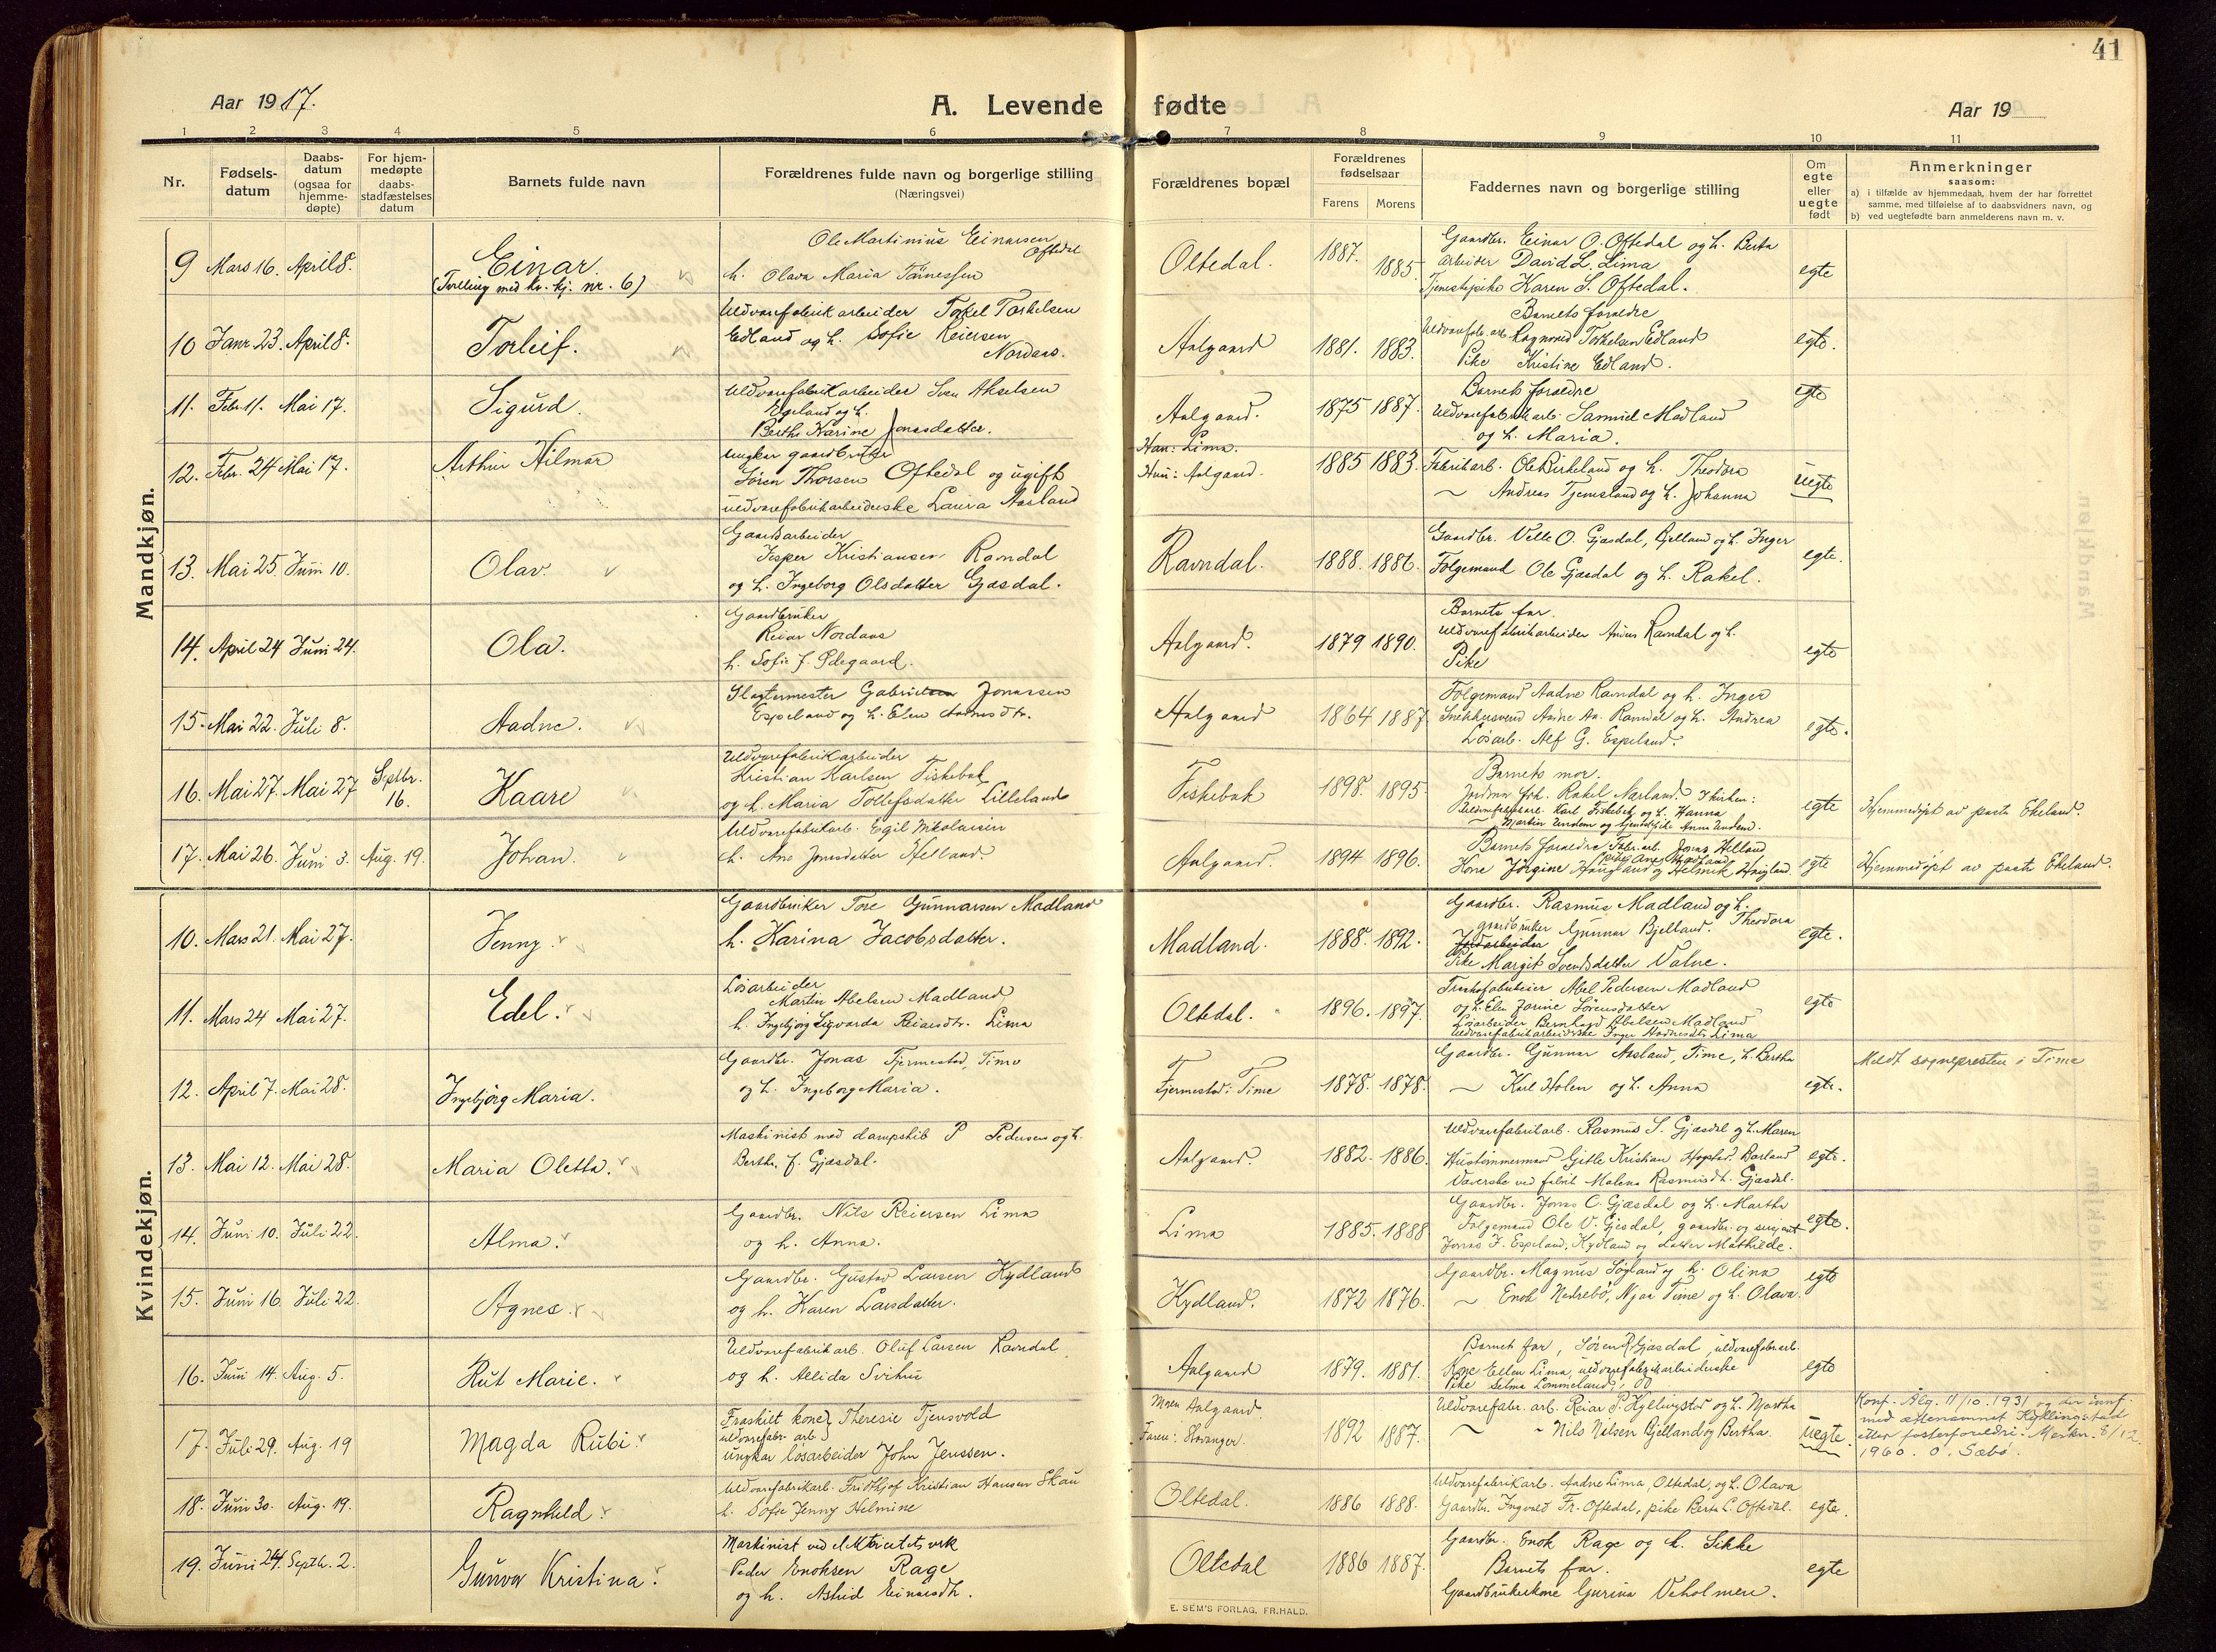 41
Aar 1917.
A. Levende fødte
Aar 19
1 2 3 4 5 6 7 8 9 10 11
Nr.
Fødsels-
datum
Daabs-
datum
(ogsaa for
hjemme-
døpte)
For hjem-
medøpte
daabs-
stadfæstelses
datum
Barnets fulde navn
Forældrenes fulde navn og borgerlige stilling
(Næringsvei)
Forældrenes bopæl
Forældrenes
fødselsaar
Farens Morens
Faddernes navn og borgerlige stilling
Om
egte
eller
uegte
født
Anmerkninger
saasom:
a) i tilfælde av hjemmedaab, hvem der har forrettet
samme, med tilføielse af to daabsvidners navn, og
b) ved uegtefødte barn anmelderens navn m. v.
Mandkjøn.
9 Mars 16. April 8.
Einar.
(Tvilling med kv. kj. nr. 6)
Ole Martinius Einarsen
Oftedal
h. Olava Maria Tønnessen
Oltedal. 1887. 1885.
Gaardbr. Einar O. Oftedal og h. Berta
arbeider David L. Lima
Tjenestepike Karen S. Oftedal.
egte
10 Janr 23. April 8.
Torleif.
Uldvarefabrikarbeider Torkel Torkelsen
Edland og h. Sofie Reiersen
Nordaas.
Aalgaard 1881. 1883.
Barnets forældre
Uldvarefab. arb. Ragnvald Torkelsen Edland
Pike Kristine Edland.
egte.
11. Febr. 11. Mai 17.
Sigurd.
Uldvarefabrikarbeider Sven Akselsen
Egeland og h.
Berthe Karine Jonasdatter.
Aalgaard. 1875 1887.
Barnets forældre
Uldvarefabrikarb. Samuel Madland
og h. Maria.
egte
12. Febr. 24 Mai 17.
Arthur Hilmar
Ungkar gaardbruker
Søren Thorsen Oftedal og ugift
uldvarefabrikarbeiderske Laura Aasland
Han: Lima.
Hun: Aalgaard. 1885 1883.
Fabrikarb. Ole Birkeland og h. Theodora
~ Andreas Tjemsland og h. Johanna
uegte
13. Mai 25. Juni 10.
Olav.
Gaardsarbeider
Jesper Kristiansen Ravndal
og h. Ingeborg Olsdatter Gjesdal.
Ravndal. 1888. 1886.
Gaardbr. Velle O. Gjesdal, Bjelland og h. Inger
Følgemand Ole Gjesdal og h. Rakel.
egte.
14. April 24 Juni 24.
Ola.
Gaardbruker
Reiar Nordaas
h. Sofie J. Ødegaard.
Aalgaard. 1879 1890.
Barnets far.
Uldvarefabrikarbeider Anders Ravndal og h.
Pike
egte
15. Mai 22. Juli 8.
Aadne.
Slagtermester Gabriel Jonassen
Espeland og h. Elen Aadnesdtr.
Aalgaard 1864 1887
Følgemand Aadne Ravndal og h. Inger
Snekkersvend Arne An. Ravndal og h. Andrea
Løsarb. Alf G. Espeland.
egte.
16. Mai 27. Mai 27 Septbr. 16.
Kaare
Uldvarefabrikarbeider
Kristian Karlsen Fiskebæk
og h. Maria Tollefsdatter Lilleland
Fiskebæk 1898. 1895
Barnets mor.
Jordmor frk. Rakel Nærland. I kirken:
Uldvarefabrikarb. Karl Fiskebæk og h. Hanna
~ Martin Undem og tjenestepike Anna Undem.
egte
Hjemmedøpt av past. Ekeland.
17. Mai 26. Juni 3. Aug. 19.
Johan.
Uldvarefabrikarb. Egil Nikolaisen
h. Ane Jonasdatter Helland.
Aalgaard. 1894 1896.
Barnets forældre Fabr. arb. Jonas Helland
pike Ane Madland
Kone Jørgine Haugland og Helmik Haugland
egte
Hjemmedøpt av past. Ekeland.
Kvindekjøn.
10. Mars 21. Mai 27.
Jenny.
Gaardbruker Tore Gunnarsen Madland
h. Karina Jacobsdatter.
Madland. 1888. 1892.
Gaardbr. Rasmus Madland og h.
gaardbruker Gunnar Bjelland. Theodora
Pike Margit Svendsdatter Valve.
egte.
11. Mars 24 Mai 27.
Edel.
Løsarbeider
Martin Abelsen Madland
h. Ingebjørg Sigvarda Reiarsdtr. Lima
Oltedal. 1896. 1897.
Abel Pedersen Madland
og h. Elen Jorine Sørensdatter
Løsarbeider Bernhard Abelsen Madland
Uldvarefabrikarbeiderske Inger Aadnesdtr. Lima
egte
12. April 7. Mai 28.
Ingebjørg Maria.
Gaardbr. Jonas Fjermestad, Time
og h. Ingeborg Maria.
Fjermestad: Time 1878. 1878.
Gaardbr. Gunnar Aasland, Time, h. Bertha
~ Karl Holen og h. Anna
egte.
Meldt sognepresten i Time
13. Mai 12. Mai 28.
Maria Oletta.
Maskinist med dampskib P Pedersen og h.
Berthe J. Gjesdal.
Aalgaard. 1882. 1886.
Uldvarefabrikarb. Rasmus S. Gjesdal og h. Maren
Hustømmermand Gitle Kristian Hopstad. Børland
Væverske ved fabrik Malena Rasmusdt. Gjesdal.
egte.
14. Juni 10. Juli 22.
Alma.
Gaardbr. Nils Reiersen Lima
og h. Anna.
Lima 1885. 1888
Gaardbr. Jonas O. Gjesdal og h. Martha
Følgemand Ole V. Gjesdal, gaardbr. og sersjant
Jonas F. Espeland, Kydland og datter Mathilde.
egte.
15. Juni 16. Juli 22.
Agnes.
Gaardbr. Gustav Larsen Kydland
og h. Karen Larsdatter.
Kydland. 1872 1876.
Gaardbr. Magnus Søyland og h. Olina
~ Enok Nedrebø, Njaa Time og h. Olava.
egte
16. Juni 14. Aug. 5.
Rut Marie.
Uldvarefabrikarb. Oluf Larsen Ravndal
og h. Allida Svihus
Aalgaard 1879. 1881.
Barnets far, Søren R Gjesdal, uldvarefabr. arb.
Kone Ellen Lima, uldvarefabrikarbeiderske
Pike Selma Lommeland,
egte
17. Juli 29. Aug. 19
Magda Rubi.
Fraskilt kone Theresie Tjensvold
uldvarefabr. arb.
ungkar løsarbeider John Jenssen.
Moren Aalgaard.
Faren: Stavanger. 1892 1887.
Uldvarefabr. arb. Reiar P. Kyllingstad og h. Martha
~ ~ Nils Nilsen Bjelland og Bertha.
uegte.
Konf. Ålg. 11/10. 1931 og der innf.
med etternamnet Kyllingstad
etter fosterforeldri. Merkn. 8/12.
1960. O. Sæbø.
18. Juni 30. Aug. 19.
Ragnhild.
Uldvarefabrikarb. Fridthjof Kristian Hansen Skau
h. Sofie Jenny Helmine
Oltedal. 1886 1888.
Uldvarefabrikarb. Aadne Lima, Oltedal, og h. Olava
Gaardbr. Ingvald Fr. Oftedal, pike Berta L. Oftedal.
egte.
19. Juni 24. Septb. 2.
Gunvor Kristina.
Maskinist ved elektricitetsverk
Peder Enoksen Rage
og h. Astrid Einarsdtr.
Oltedal 1886 1887.
Gaardbr. Enok Rage og h. Sikke
Barnets far.
Gaardbrukerkone Gurina Veholmen.
egte
E. SEM'S FORLAG, FR.HALD.